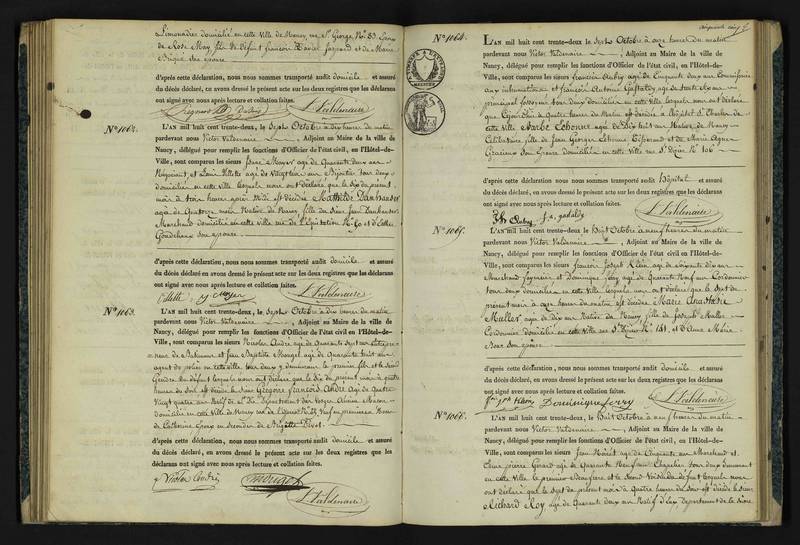 Limonadier domicilié en cette Ville de Nancy, rue St George, No 83. Époux
de Rose May, fils de défunt françois Xavier et de Marie
son épouse
d'après cette déclaration, nous nous sommes transporté audit domicile et assuré
du décès déclaré, en avons dressé le présent acte sur les deux registres que les déclarans
ont signé avec nous après lecture et collation faites.
L. Valdenaire
No 1062.
L'AN mil huit cent trente-deux, le sept Octobre à dix heures du matin
pardevant nous Victor Valdenaire, Adjoint au Maire de la ville de
Nancy, délégué pour remplir les fonctions d'Officier de l'état civil, en l'Hôtel-de-
Ville, sont comparus les sieurs Mayer agé de Quarante deux ans
Négociant, et Louis Villette agé de Vingt ans Bijoutier tous deux
domiciliés en cette ville lesquels nous ont déclaré, que le dix du présent
mois à trois heures après midi est décédée Mathilde
agée de Quatorze mois Native de Nancy, fille du Sieur Jean
Marchand domicilié en cette ville rue de l'Équitation No 50 et d'Esther
Goudchaux son épouse
d'après cette déclaration, nous nous sommes transporté audit domicile et assuré
du décès déclaré en avons dressé le présent acte sur les deux registres que les déclarans
ont signé avec nous après lecture et collation faites.
Villette Mayer L. Valdenaire
No 1063.
L'AN mil huit cent trente-deux, le sept Octobre à dix heures du matin
pardevant nous Victor Valdenaire, Adjoint au Maire de la ville de
Nancy, délégué pour remplir les fonctions d'Officier de l'état civil, en l'Hôtel-de-
Ville, sont comparus les sieurs Nicolas André agé de Quarante sept ans
neur de Bâtimens et Jean Baptiste Mougel agé de Quarante huit ans
agent de police en cette ville tous deux y demeurant le premier fils et le second
Gendre du défunt lesquels nous ont déclaré que le six du présent mois à quatre
heures du soir est décédé le Sieur Grégoire François André Agé de Quatre
Vingt quatre ans Natif de St Dié Département des Vosges
domicilié en cette Ville de Nancy rue No Veuf en premières Noces
de Catherine et en secondes de
d'après cette déclaration, nous nous sommes transporté audit domicile et assuré
du décès déclaré, en avons dressé le présent acte sur les deux registres que les
déclarans ont signé avec nous après lecture et collation faites.
Nicolas André Mougel
L. Valdenaire
No 1064.
L'AN mil huit cent trente-deux le sept Octobre à onze heures du matin
pardevant nous Victor Valdenaire, Adjoint au Maire de la ville de
Nancy, délégué pour remplir les fonctions d'Officier de l'état civil, en l'Hôtel-de-
Ville, sont comparus les sieurs françois Aubry agé de Cinquante deux ans Commissaire
aux inhumations et françois Antoine Gastaldy agé de trente six ans
principal fossoyeur tous deux domiciliés en cette Ville lesquels nous ont déclaré
que Cejourd'hui à Quatre heures du Matin est décédée à l'hôpital St Charles de
cette Ville Barbe Ethonet agée de Dix huit ans Native de Nancy
Célibataire fille de Jean Georges Ethonet et de Marie Agnès
son Épouse domiciliés en cette ville rue St Dizier No 106
d'après cette déclaration, nous nous sommes transporté audit Hôpital et assuré
du décès déclaré, en avons dressé le présent acte sur les deux registres que les déclarans
ont signé avec nous après lecture et collation faites.
Aubry f. a. gastaldy L. Valdenaire
No 1065.
L'AN mil huit cent trente-deux le huit Octobre à neuf heures du matin
pardevant nous Victor Valdenaire, Adjoint au Maire de la ville de
Nancy, délégué pour remplir les fonctions d'Officier de l'état civil, en l'Hôtel-de-
Ville, sont comparus les sieurs françois Joseph Klein agé de soixante dix ans
Marchand et Dominique ferry agé de Quarante Neuf ans Cordonnier
tous deux domiciliés en cette Ville lesquels nous ont déclaré que le sept du
présent mois à onze heures du matin est décédée Marie Anastasie
Muller agée de dix ans Native de Nancy, fille de Joseph Muller
Cordonnier domicilié en cette ville rue St Dizier No 151, et d'Anne Marie
son épouse
d'après cette déclaration, nous nous sommes transporté audit domicile et assuré
du décès déclaré, en avons dressé le présent acte sur les deux registres que les déclarans
ont signé avec nous après lecture et collation faites.
Klein Dominique ferry L. Valdenaire
No 1066.
L'AN mil huit cent trente-deux, le huit Octobre à neuf heures du matin
pardevant nous Victor Valdenaire, Adjoint au Maire de la ville de
Nancy, délégué pour remplir les fonctions d'Officier de l'état civil, en l'Hôtel-de-
Ville, sont comparus les sieurs Jean agé de Cinquante ans Marchand et
pierre Gérard agé de Quarante Neuf ans Chapelier tous deux demeurant
en cette Ville le premier Beaufrère et le second Voisin du défunt lesquels nous
ont déclaré que le sept du présent mois à Quatre heures du soir est décédé le Sieur
Richard Roy agé de Quarante deux ans Natif d' Département de la